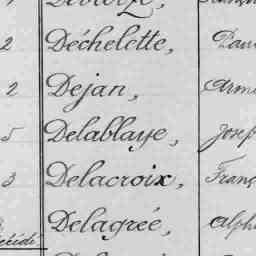 2 Déchelette,
2 Dejan,
5 Delablaye, Josep
3 Delacroix, Franç
Delagrée, Alph